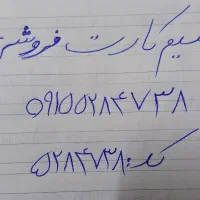 سیم کارت فروشی
۰۹۱۵۵۲۸۴۷۳۸
کد: ۵۲۸۴۷۳۸